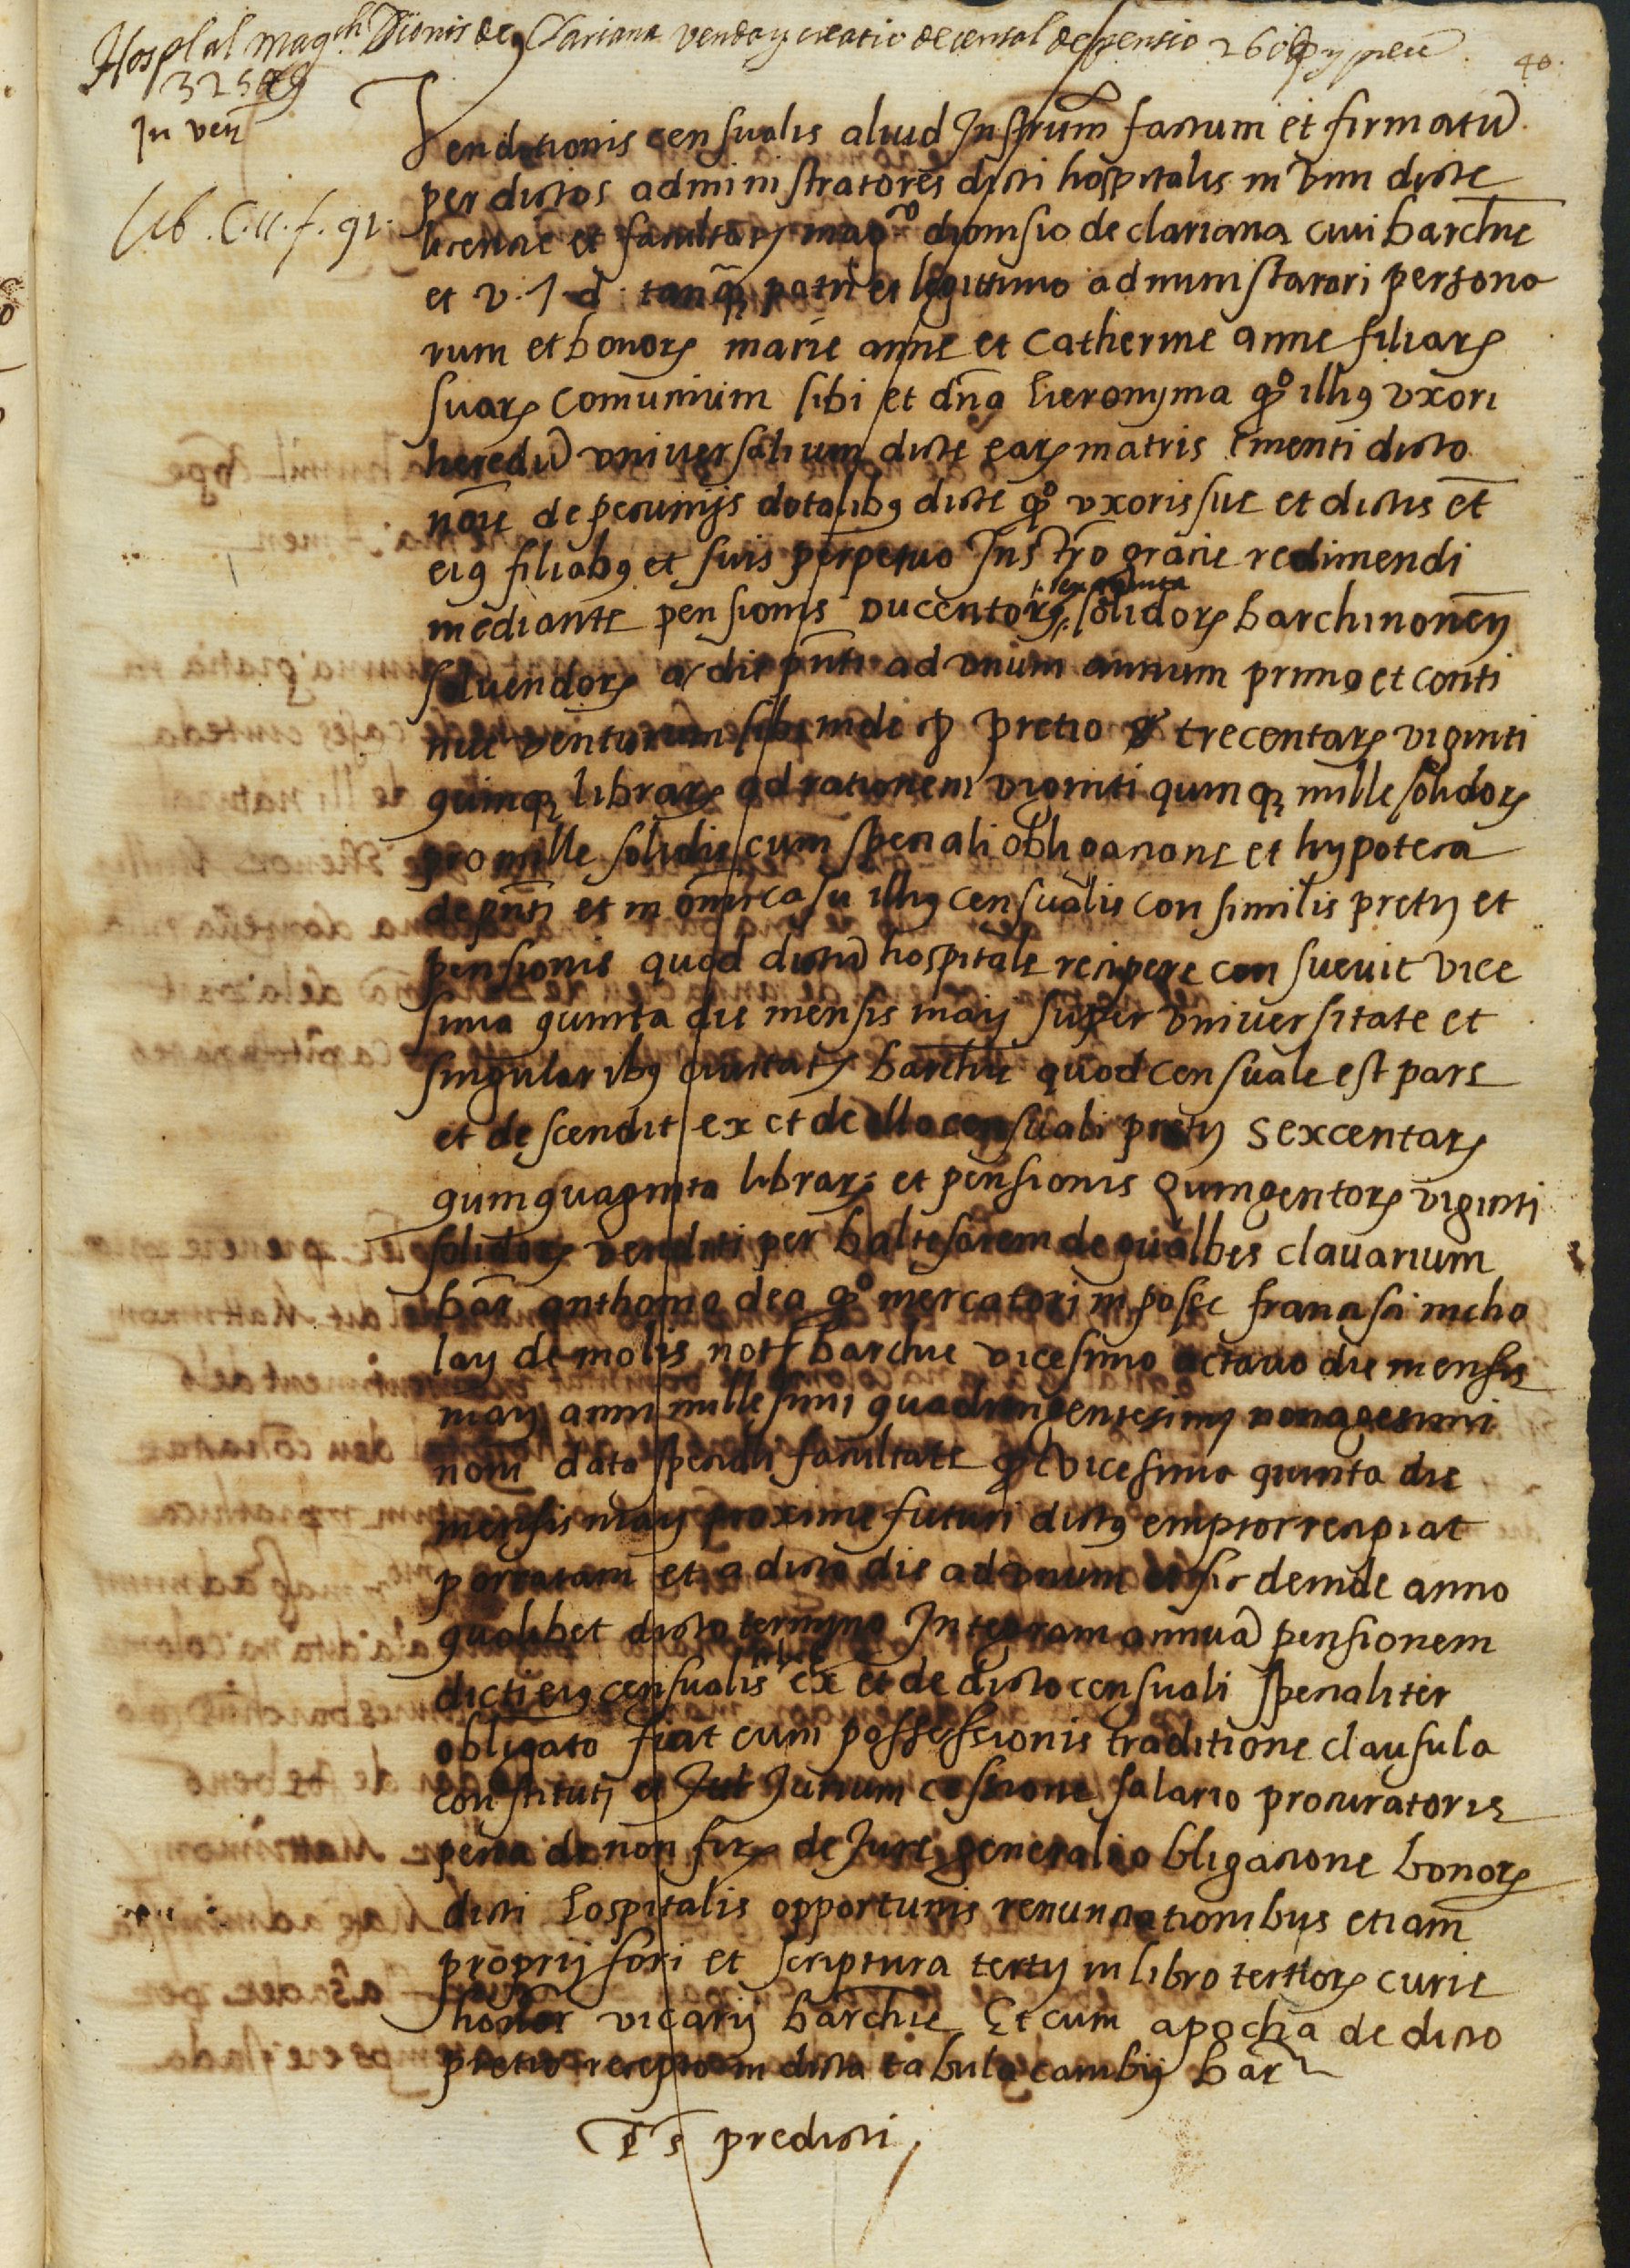 Hosplal magch Dionis de Clariana venda y creatio de censal de pensio 260 ß y preu
40.
325 ₶
In ven
Vendationis censualis aliud Instrum factum et firmatu
per dictos administratores dicti hospitalis in vim dicte
Lib. C.11. f. 91.
licentie et facultatis magco dionisio de clariana civi barchne
et v. J. d. tanq patri et legittimo administarari persona
rum et bonor marie anne et Catherine anne filiar
suar comunium sibi et dna hieronyma qo illius uxori
heredu universalium dicte ear matris ementi dicto
noie de pecunijs dotalibus dicte qo uxoris sue et dictis et
eius filiabus et suis perpetuo Instro gracie redimendi
mediante pensionis ducentor sexaginta solidor barchinonen
solvendor a die pnti ad unum annum primo et conti
nue venturum sibi inde p pretio trecentar viginti
quinq librar ad rationem viginti quinq mille solidor
pro mille solidis cum speciali obligacione et hypoteca
de pnti et in omni casu illius censualis consimilis pretij et
pensionis quod dictu hospitale recipere consuevit vice
sima quinta die mensis maij super universitate et
singularibus civitatis barchne quod censuale est pars
et descendit ex et de illo censuali pretij sexcentar
quinquaginta librar et pensionis quingentor viginti
solidor venduti per baltesarem de gualbes clavarium
bar anthonio dea qo mercatori in posse francisci nicho
lay de molis not barchne vicesimo octavo die mensis
maij anni millesimi quadringentesimi nonagesimi
noni data speciali facultate q vicesima quinta die
mensis maij proxime futuri dictus emptor recipiat
porratam et a dicto die ad unum et sic deinde anno
qualibet dicto termino Integram annua pensionem
dicti eius censualis ex et de dicto censuali specialiter
obligato fiat cum possessionis traditione clausula
constituti et Jurium cessione salario procuratoris
pena de non fir de Jure generali obligacione bonor
dicti hospitalis opportunis renunciationibus etiam
proprij fori et scriptura tertij in libro tertior curie
honor vicarij barchne Et cum apocha de dicto
pretio recepto in dicta tabula cambij bar
Ts predicti